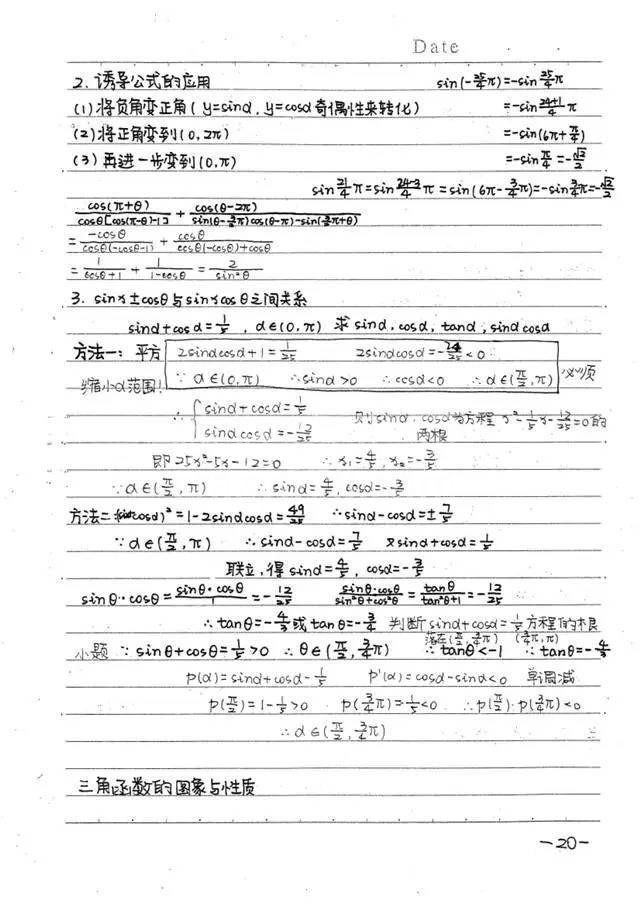 Date
2. 诱导公式的应用 sin(-25/4π)=-sin25/4π
(1) 将负角变正角(y=sinα, y=cosα奇偶性来转化) =-sin(24+1)/4 π
(2) 将正角变到(0, 2π) =-sin(6π+π/4)
(3) 再进一步变到(0, π) =-sinπ/4=-√2/2
sin21/4π=sin(24-3)/4π=sin(6π-3/4π)=-sin3/4π=-√2/2
cos(π+θ)/cosθ[cos(π-θ)-1] + cos(θ-2π)/sin(θ-3/2π)cos(θ-π)-sin(3/2π+θ)
=-cosθ/cosθ(-cosθ-1) + cosθ/cosθ(-cosθ)+cosθ
=1/cosθ+1 + 1/1-cosθ = 2/sin²θ
3. sinγ±cosθ与sinγcosθ之间关系
sinα+cosα=1/5, α∈(0,π) 求sinα, cosα, tanα, sinαcosα
方法一: 平方 2sinαcosα+1=1/25 2sinαcosα=-24/25<0
缩小α范围! ∵α∈(0,π) ∴sinα>0 ∴cosα<0 ∴α∈(π/2,π) 必须
∴{sinα+cosα=1/5 则sinα, cosα为方程x²-1/5x-12/25=0的
sinαcosα=-12/25 两根
即25x²-5x-12=0 ∴x₁=4/5, x₂=-3/5
∵α∈(π/2,π) ∴sinα=4/5, cosα=-3/5
方法二:(sin-cosα)²=1-2sinαcosα=49/25 ∴sinα-cosα=±7/5
∵α∈(π/2,π) ∴sinα-cosα=7/5 又sinα+cosα=1/5
联立,得sinα=4/5, cosα=-3/5
sinθ·cosθ=sinθ·cosθ/1=-12/25 sinθ·cosθ/sin²θ+cos²θ=tanθ/tan²θ+1=-12/25
∴tanθ=-4/3或tanθ=-3/4 判断sinα+cosα=1/5方程的根
落在(π/2,3/4π) (3/4π,π)
小题 ∵sinθ+cosθ=1/5>0 ∴θ∈(π/2,3/4π) ∴tanθ<-1 ∴tanθ=-4/3
P(α)=sinα+cosα-1/5 P'(α)=cosα-sinα<0 单调减
P(π/2)=1-1/5>0 P(3/4π)=-1/5<0 ∴P(π/2)·P(3/4π)<0
∴α∈(π/2,3/4π)
三角函数的图象与性质
-20-